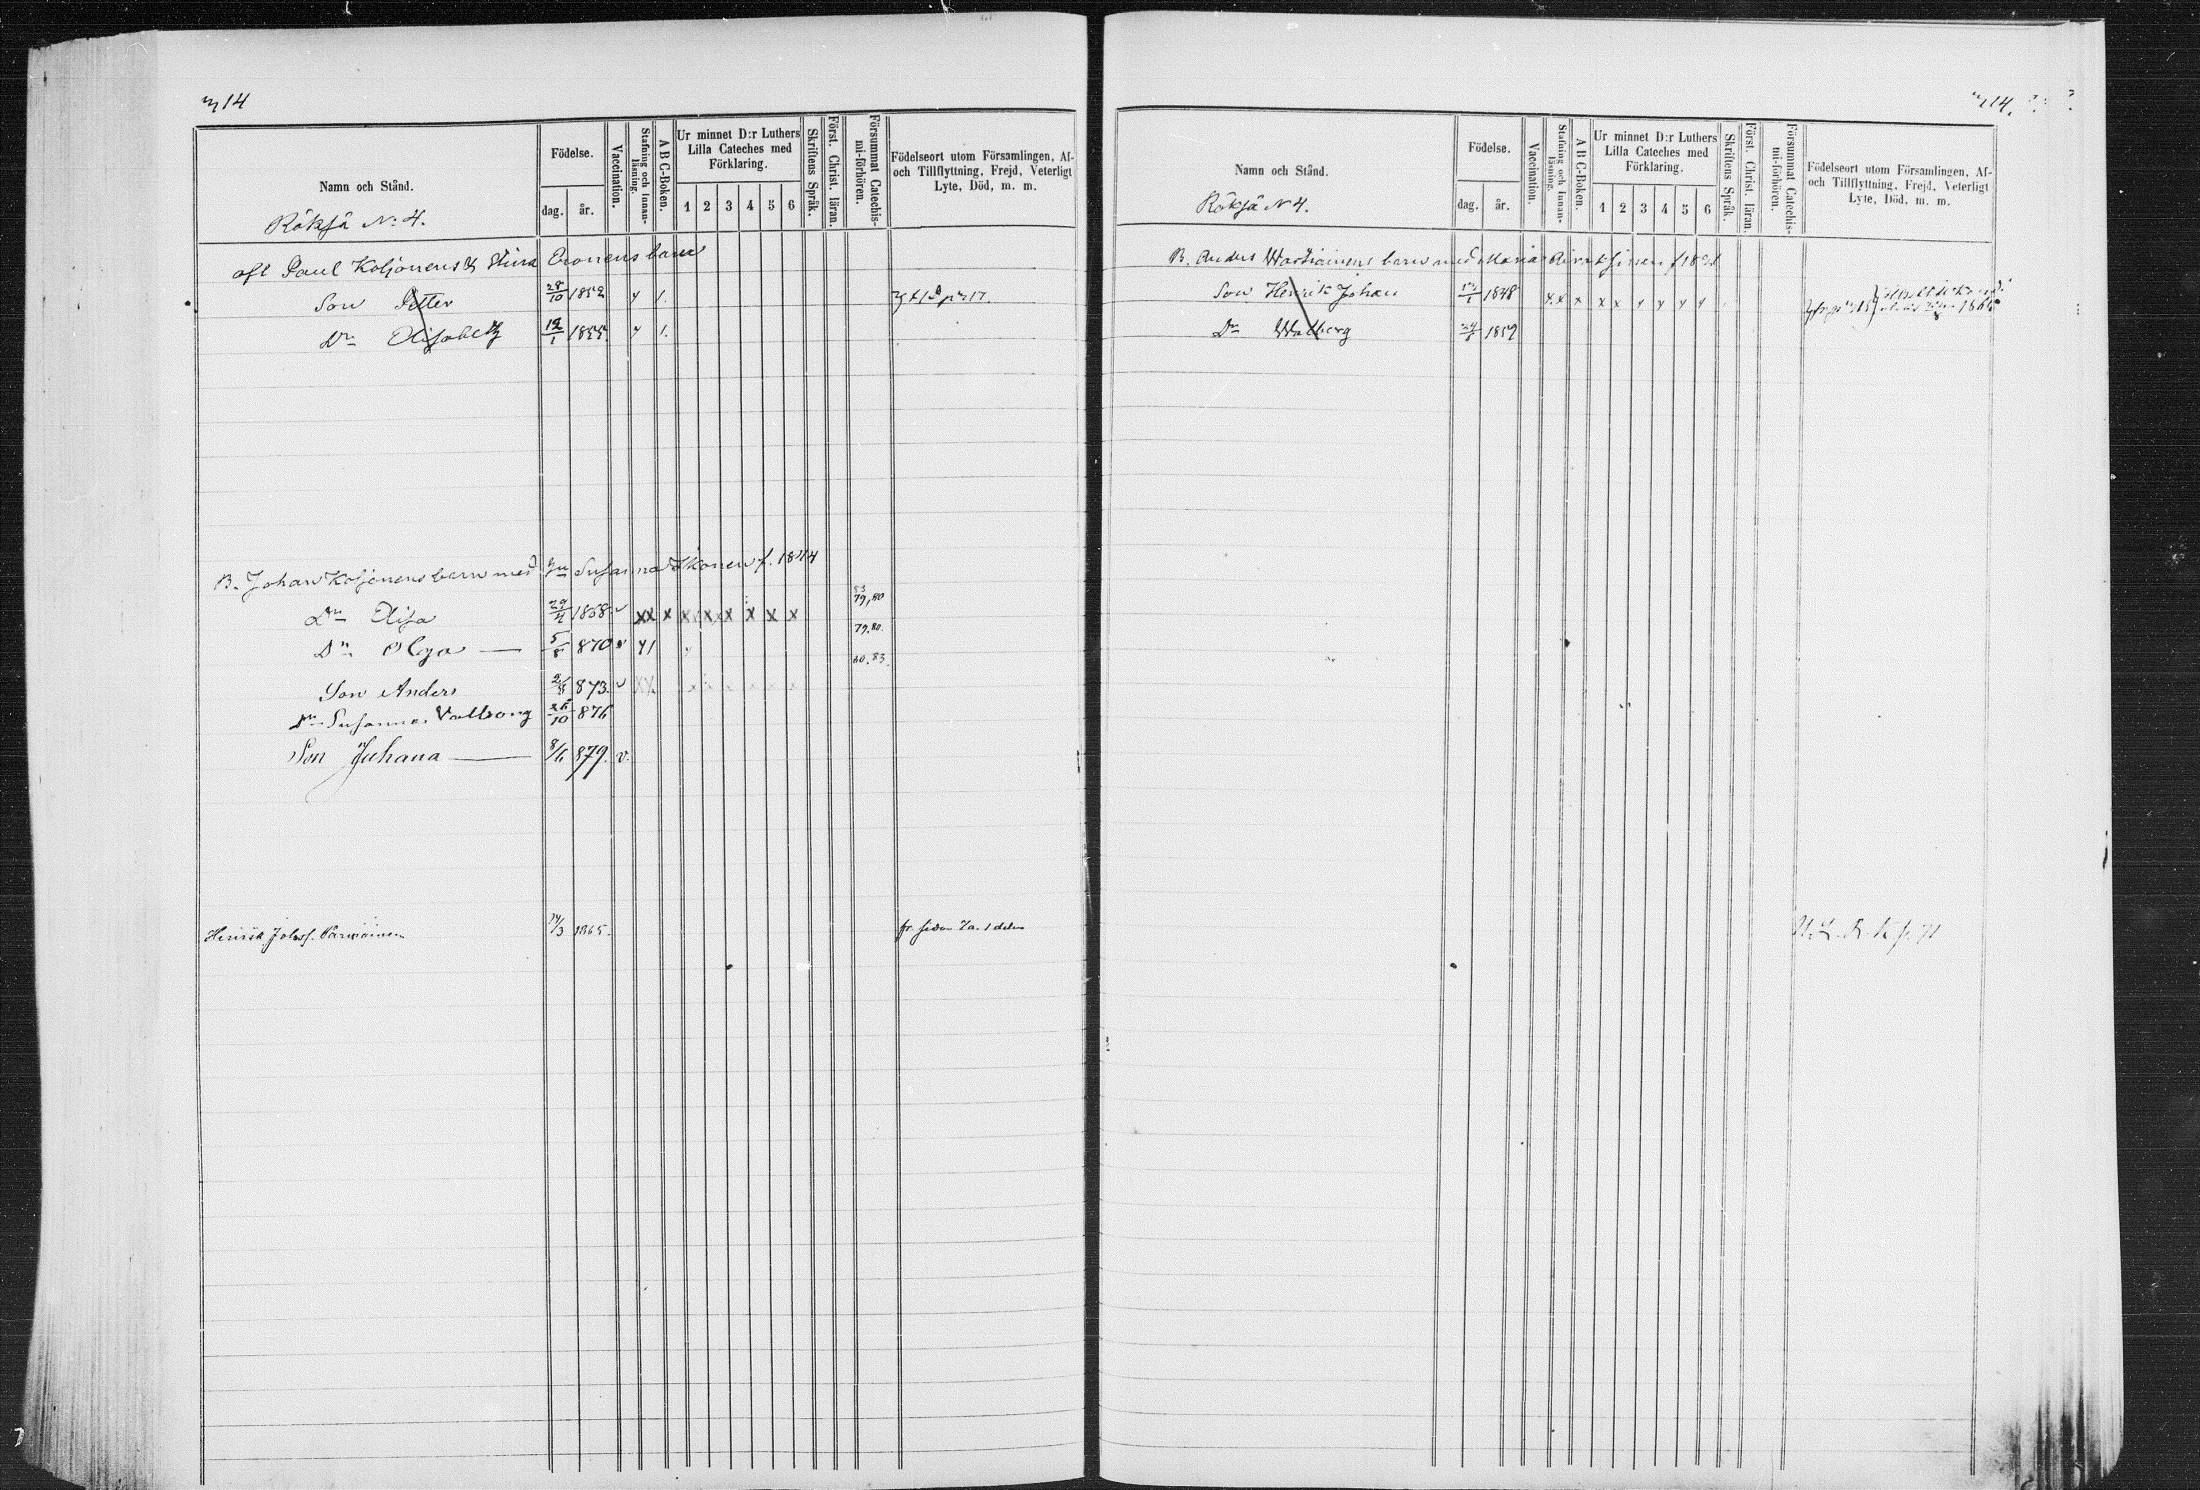 714
Namn och Stånd.
Födelse.
dag. år.
Vaccination.
Stafning och Innan-
läsning.
A B C-Boken.
Ur minnet D:r Luthers
Lilla Cateches med
Förklaring.
1 2 3 4 5 6
Skriftens Språk.
Först. Christ. läran.
Försummat Catechis-
mi-förhören.
Födelseort utom Församlingen, Af-
och Tillflyttning, Frejd, Veterligt
Lyte, Död, m. m.
Röksä N:o 4.
afl Paul Koljonens barn
Son Petter 28/10 1852 1.
Dr Elisabeth 12/1 1855. 1.
B. Johan Koljonens barn med Susanna Ikonen f. 1844
Dr Elisa 29/4 1868 v xx x x x x x x x 83 79,80
Dr Olga — 5/8 870 79.80.
Son Anders 873. v 80.83.
Dr Susanna Valborg 26/10 876
Son Juhana — 8/6 879. v.
Henrik Johss. 14/3 1865. fr. sidan 7a. 1 delen
714.
Namn och Stånd.
Födelse.
dag. år.
Vaccination.
Stafning och Innan-
läsning.
A B C-Boken.
Ur minnet D:r Luthers
Lilla Cateches med
Förklaring.
1 2 3 4 5 6
Skriftens Språk.
Först. Christ. läran.
Försummat Catechis-
mi-förhören.
Födelseort utom Församlingen, Af-
och Tillflyttning, Frejd, Veterligt
Lyte, Död, m. m.
Röksä N 4.
B. Anders barn med Maria
Son Henrik Johan 1848 x x x x x
Dr Walberg 1859